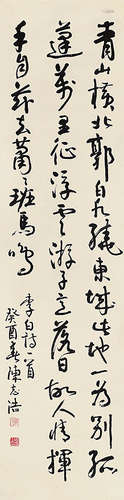 青山橫北郭白水繞東城此地一為別孤
蓬萬里征浮雲游子意落日故人情揮
手自茲去蕭々班馬鳴
李白詩一首
癸酉春陳志浩